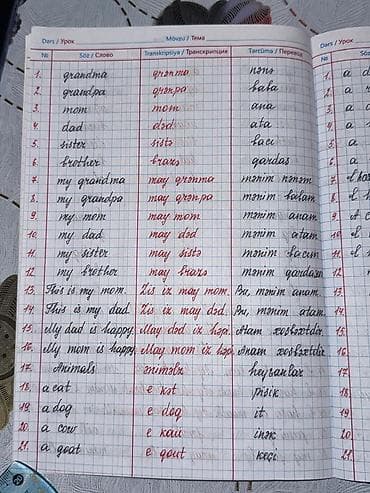 Dars / Урок Mövzu / Тема Dars / Урок
№ Söz / Слово Transkripsiya / Транскрипция Tərcümə / Перевод № Söz
1. grandma qrənma nənə 1. a
2. grandpa qrənpa baba 2. a
3. mom mom ana 3. a
4. dad dəd ata 4. a
5. sister sistə bacı 5. a
6. brother brazə qardaş 6. a
7. my grandma may qrənma mənim nənəm 7.
8. my grandpa may qrənpa mənim babam 8.
9. my mom may mom mənim anam 9.
10. my dad may dəd mənim atam 10.
11. my sister may sistə mənim bacım 11.
12. my brother may brazə mənim qardaşım 12
13. This is my mom. Zis iz may mom. Bu, mənim anam. 13
14. This is my dad. Zis iz may dəd. Bu, mənim atam. 14.
15. My dad is happy. May dəd iz həpi. Atam xoşbəxtdir. 15
16. My mom is happy. May mom iz həpi. Anam xoşbəxtdir. 16
17. Animals ənimәlz heyvanlar 17
18. a cat e kət pişik 18
19. a dog e dog it 19
20. a cow e kau inək 20
21. a goat e gout keçi 21